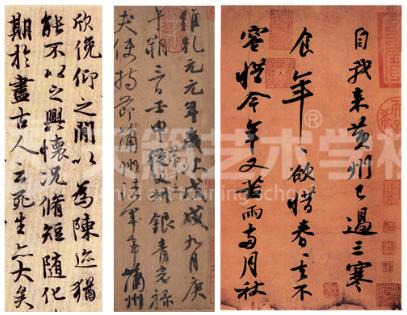 欣俛仰之閒以為陳迹猶
能不以之興懷況脩短隨化
期於盡古人云死生亦大矣
維乾元元年歲次戊戌九月庚
午朔三日壬申銀青光祿
夫使持節蒲州諸軍事蒲州
自我來黃州已過三寒
食年、欲惜春、去不
容惜今年又苦雨兩月秋
艺术学校